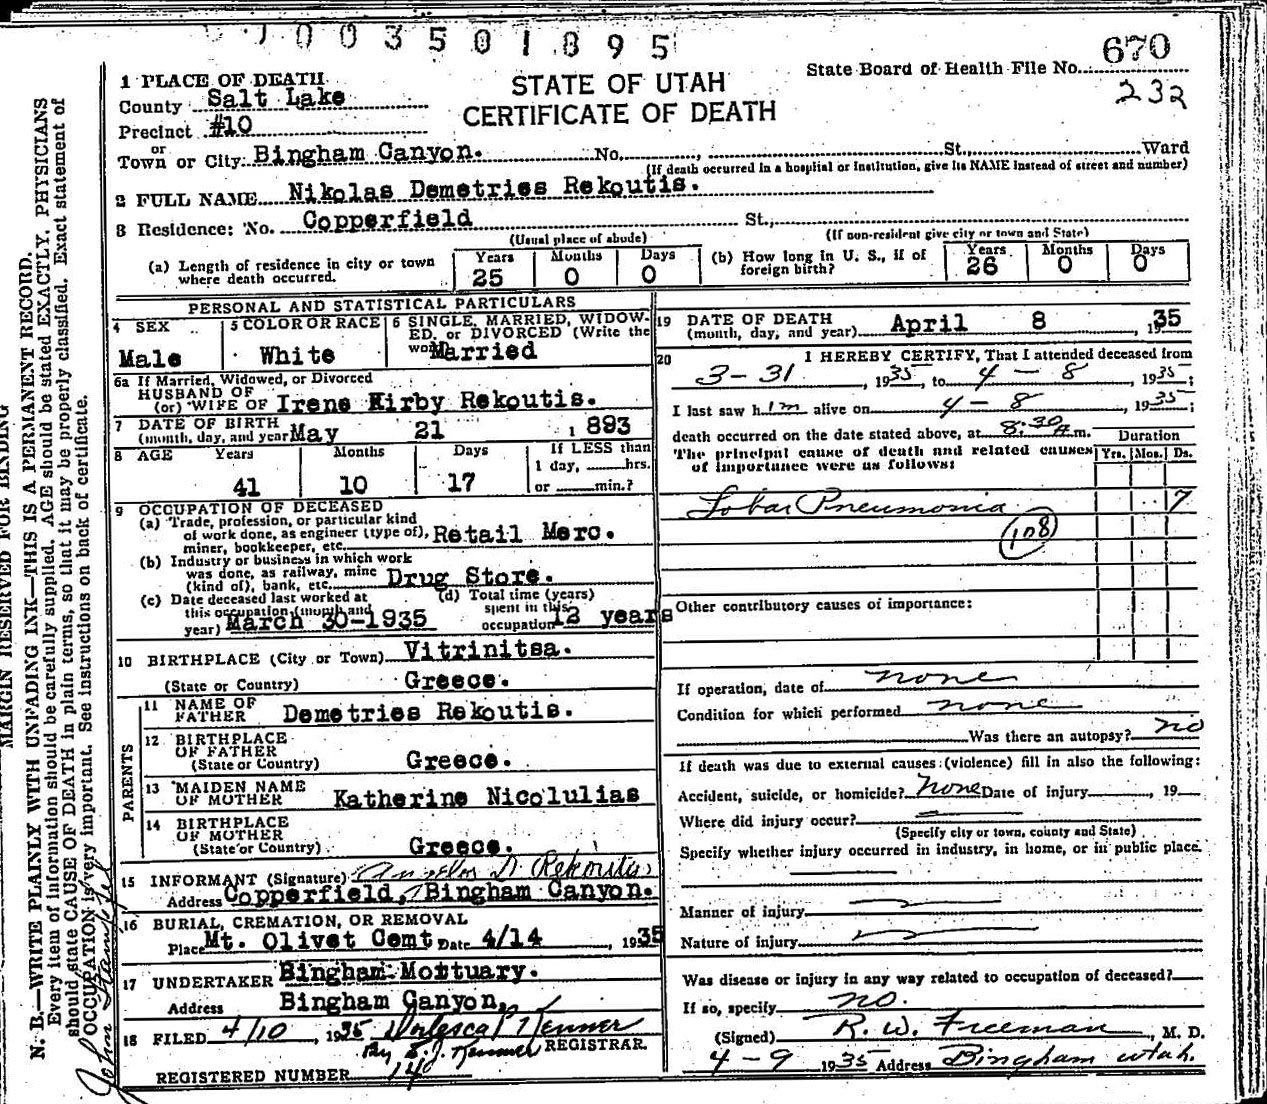 1003501895
670
State Board of Health File No.
232
1 PLACE OF DEATH
STATE OF UTAH
County Salt Lake
CERTIFICATE OF DEATH
Precinct #10
or
Town or City: Bingham Canyon. No. , St., Ward
(If death occurred in a hospital or institution, give its NAME instead of street and number)
2 FULL NAME Nikolas Demetries Rekoutis.
3 Residence: No. Copperfield St.,
(Usual place of abode) (If non-resident give city or town and State)
(a) Length of residence in city or town where death occurred. Years 25 Months 0 Days 0
(b) How long in U. S., if of foreign birth? Years 26 Months 0 Days 0
PERSONAL AND STATISTICAL PARTICULARS
4 SEX Male
5 COLOR OR RACE White
6 SINGLE, MARRIED, WIDOW-
ED, or DIVORCED (Write the
word) Married
6a If Married, Widowed, or Divorced
HUSBAND OF
(or) WIFE OF Irene Kirby Rekoutis.
7 DATE OF BIRTH
(month, day, and year) May 21 1893
8 AGE Years 41 Months 10 Days 17
If LESS than
1 day, hrs.
or min.?
9 OCCUPATION OF DECEASED
(a) Trade, profession, or particular kind
of work done, as engineer (type of),
miner, bookkeeper, etc. Retail Merc.
(b) Industry or business in which work
was done, as railway, mine
(kind of), bank, etc. Drug Store.
(c) Date deceased last worked at
this occupation (month and
year) March 30-1935
(d) Total time (years)
spent in this
occupation 12 years
10 BIRTHPLACE (City or Town) Vitrinitsa.
(State or Country) Greece.
PARENTS
11 NAME OF
FATHER Demetries Rekoutis.
12 BIRTHPLACE
OF FATHER
(State or Country) Greece.
13 MAIDEN NAME
OF MOTHER Katherine Nicolulias
14 BIRTHPLACE
OF MOTHER
(State or Country) Greece.
15 INFORMANT (Signature) Angelos D. Rekoutis
Address Copperfield, Bingham Canyon.
16 BURIAL, CREMATION, OR REMOVAL
Place Mt. Olivet Cemt Date 4/14, 1935
17 UNDERTAKER Bingham Mottuary.
Address Bingham Canyon,
18 FILED 4/10, 1935
REGISTRAR.
REGISTERED NUMBER
19 DATE OF DEATH
(month, day, and year) April 8, 1935
20 I HEREBY CERTIFY, That I attended deceased from
3-31, 1935, to 4-8, 1935;
I last saw him alive on 4-8, 1935;
death occurred on the date stated above, at 8:30 A.m.
The principal cause of death and related causes
of importance were as follows:
Duration
Yrs. Mos. Ds.
Lobar Pneumonia 7
108
Other contributory causes of importance:
If operation, date of none
Condition for which performed none
Was there an autopsy? no
If death was due to external causes (violence) fill in also the following:
Accident, suicide, or homicide? None Date of injury , 19
Where did injury occur?
(Specify city or town, county and State)
Specify whether injury occurred in industry, in home, or in public place.
Manner of injury
Nature of injury
Was disease or injury in any way related to occupation of deceased?
If so, specify no.
(Signed) R. W. Freeman, M. D.
4-9 1935 Address Bingham Utah.
MARGIN RESERVED FOR BINDING
N. B.—WRITE PLAINLY WITH UNFADING INK—THIS IS A PERMANENT RECORD.
Every item of information should be carefully supplied. AGE should be stated EXACTLY. PHYSICIANS
should state CAUSE OF DEATH in plain terms, so that it may be properly classified. Exact statement of
OCCUPATION is very important. See instructions on back of certificate.